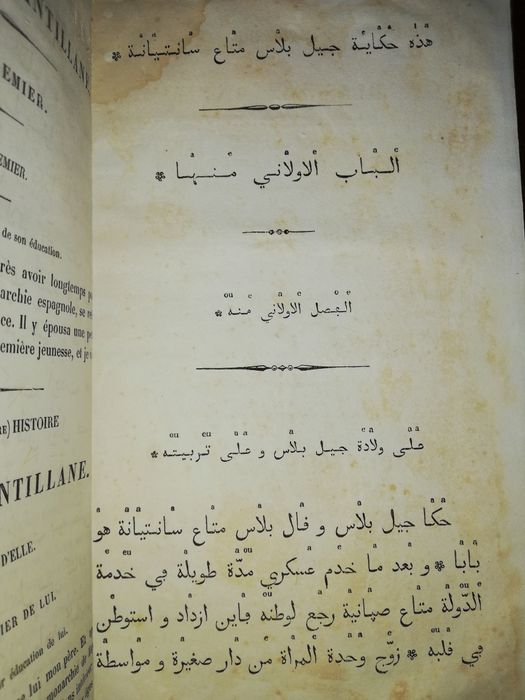 ANTILLANE
EMIER.
EMIER.
de son éducation.
rès avoir longtemps
archie espagnole, se re
ce. Il y épousa une pe
emière jeunesse, et je
RE) HISTOIRE
NTILLANE.
D'ELLE.
IER DE LUI.
r éducation de lui.
هذه حكاية جيل بلاس متاع سانتيانة *
الباب الاولاني منها *
الڢصل الاولاني منه *
على ولادة جيل بلاس و على تربيته *
حكا جيل بلاس و ڧال بلاس متاع سانتيانة هو
بابا * و بعد ما خدم عسكري مدّة طويلة ڢي خدمة
الدّولة متاع صپانية رجع لوطنه ڢاين ازداد و استوطن
ڢي ڧلبه * زوّج وحدة المراة من دار صغيرة و مواسطة